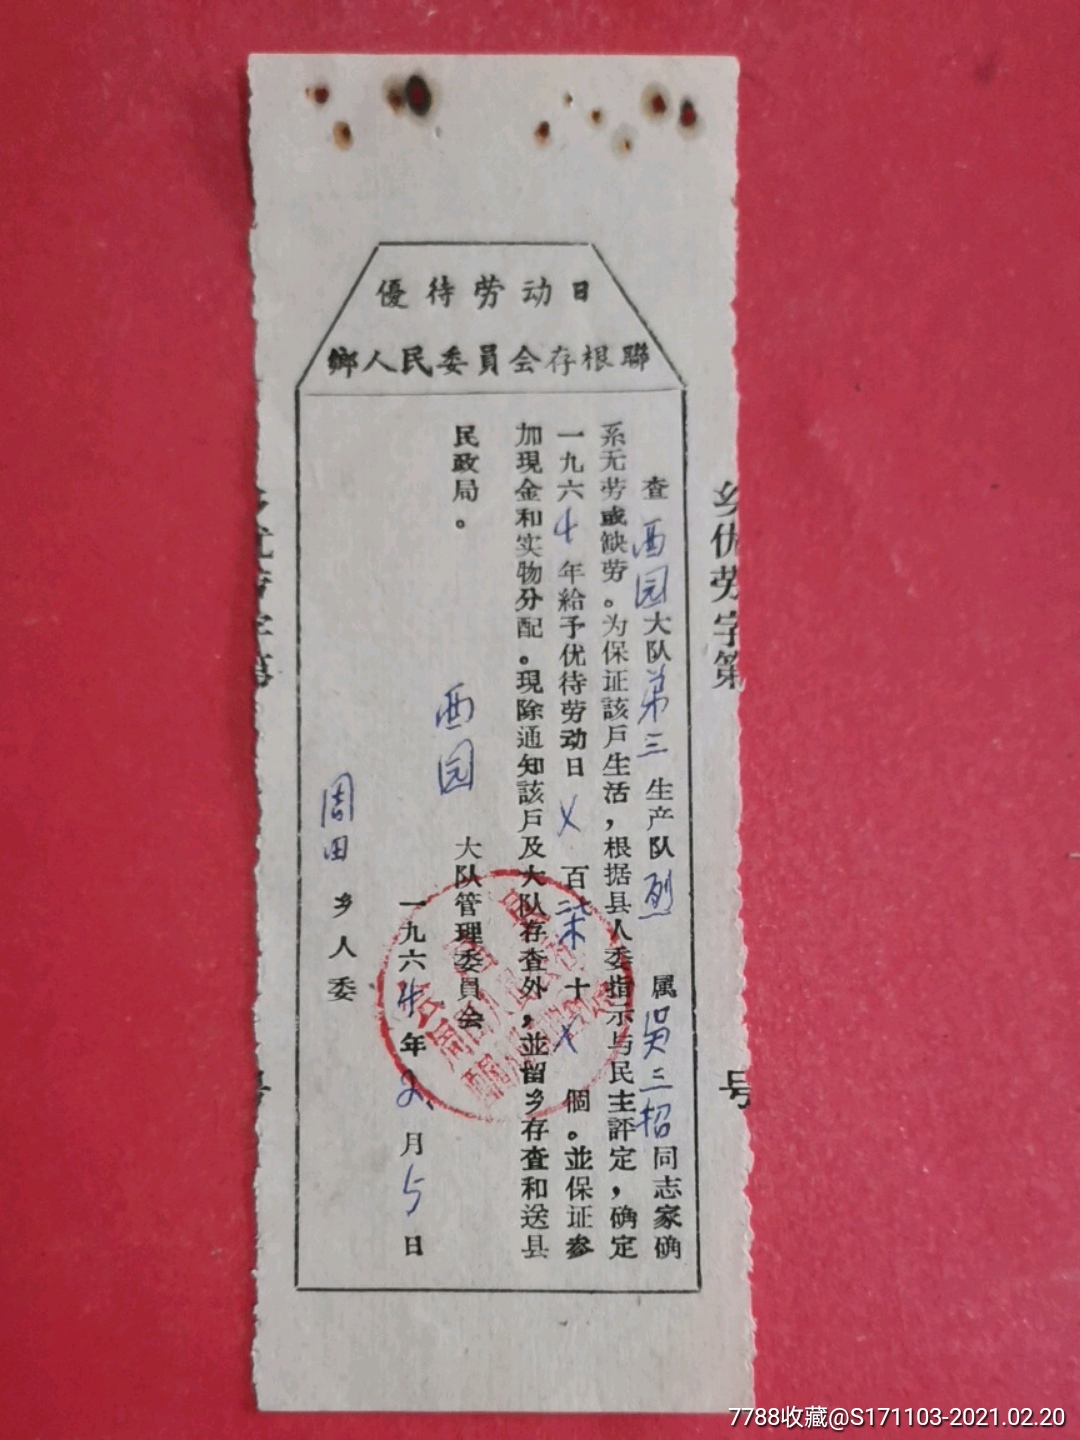 優待劳动日
鄉人民委員会存根聯
查西园大队第三生产队烈属吴三招同志家确
系无劳或缺劳。为保证該戶生活，根据县人委指示与民主評定，确定
一九六4年給予优待劳动日乂百柒十乂個。並保证参
加現金和实物分配。現除通知該戶及大队存查外，並留乡存查和送县
民政局。
西园大队管理委員会
一九六4年2月5日
周田乡人委
乡优劳字第
号
7788收藏@S171103-2021.02.20